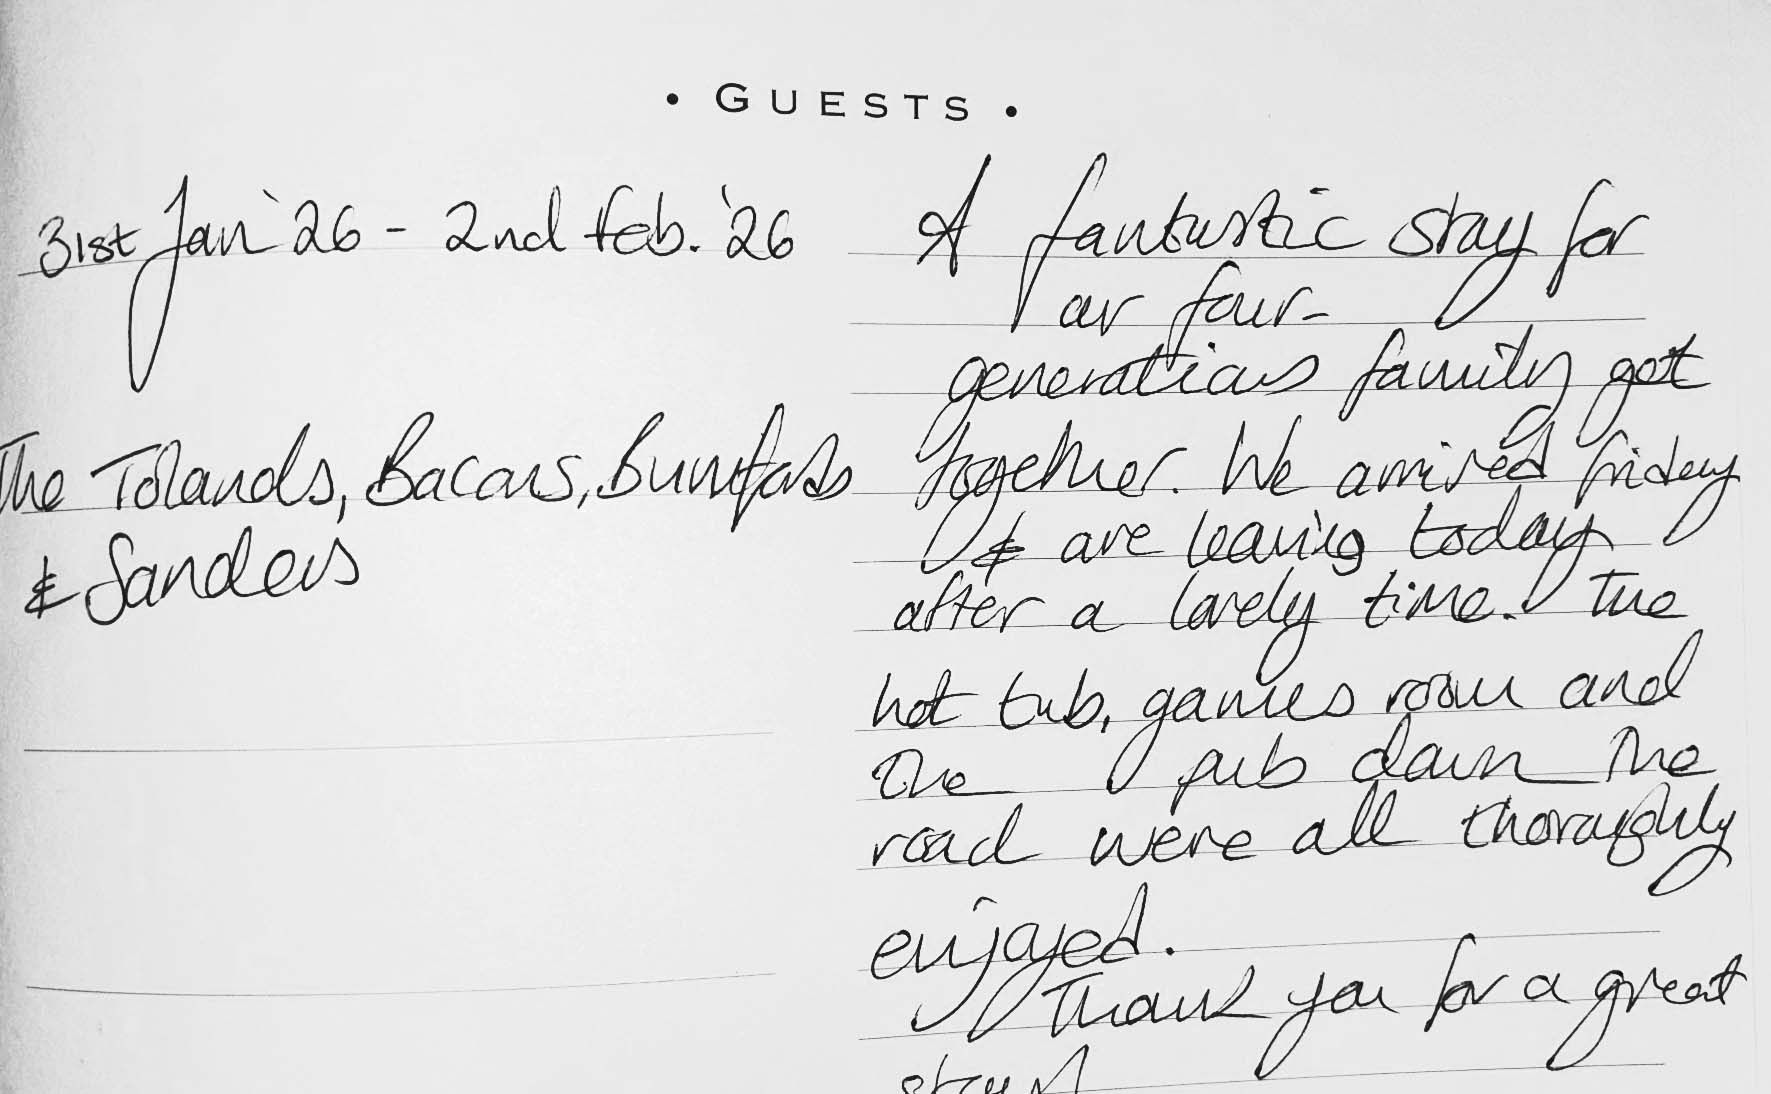 • GUESTS •
31st Jan '26 - 2nd Feb. '26
The Tolands, Bacons,
& Sanders
A fantastic stay for
our four-
generations family get
together. We arrived friday
& are leaving today
after a lovely time. The
hot tub, games room and
the pub down the
road were all thoroughly
enjoyed.
Thank you for a great
stay